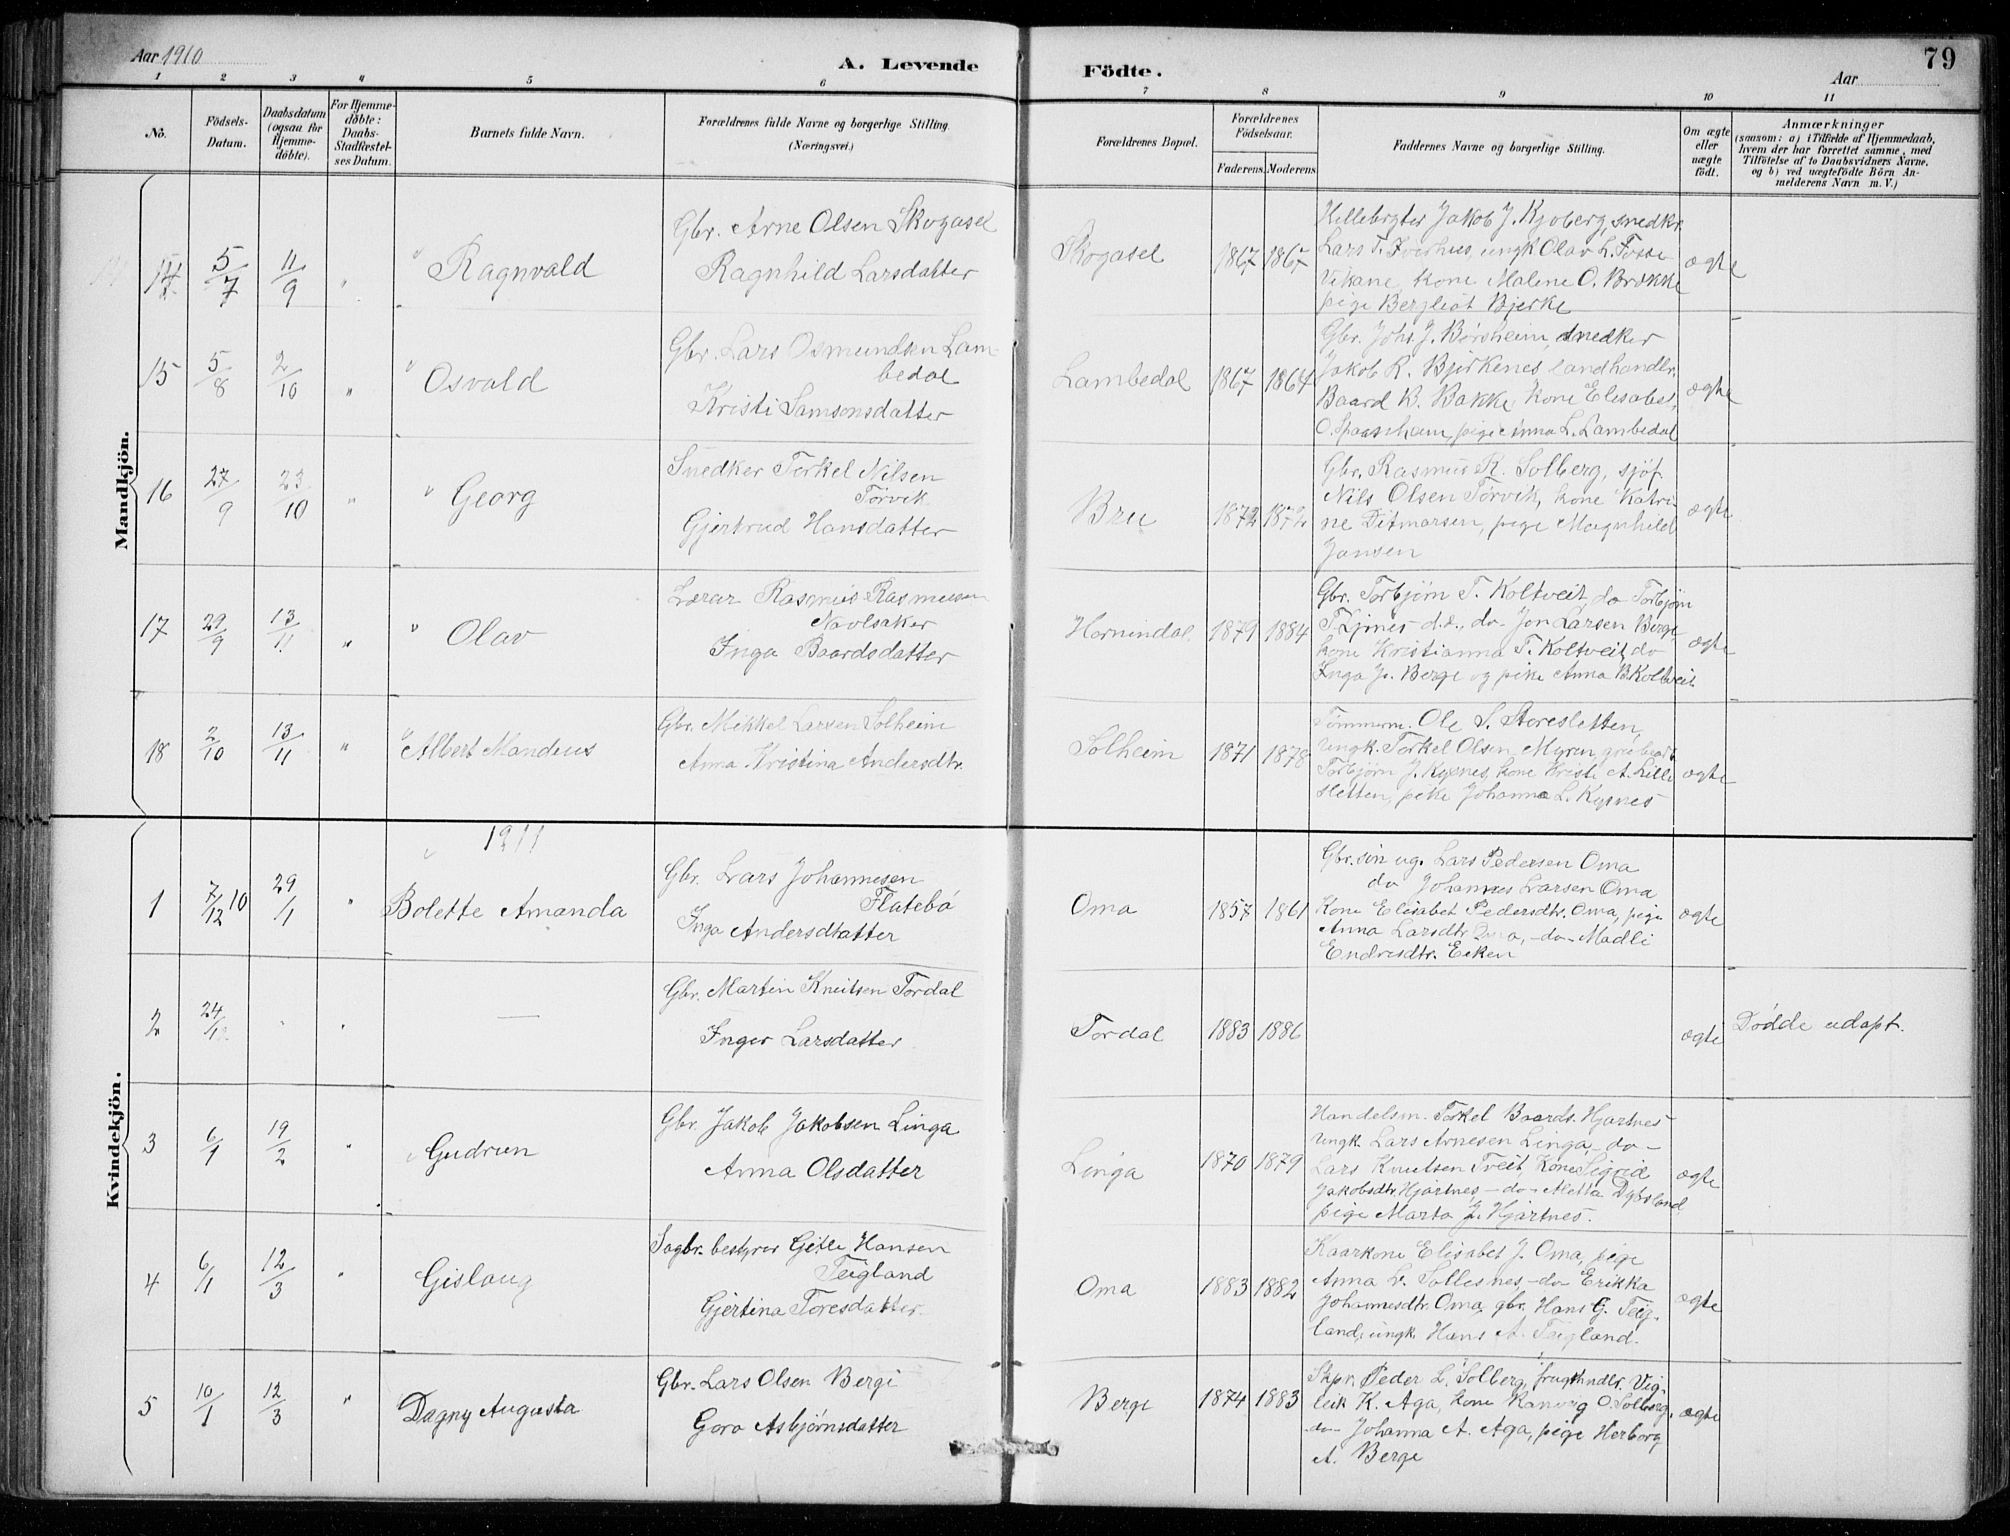 Aar 1910
A. Levende Födte.
Aar
79
1 2 3 4 5 6 7 8 9 10 11
No.
Födsels-Datum.
Daabsdatum (ogsaa for Hjemmedöbte).
For Hjemmedöbte: Daabs-Stadfæstelses Datum.
Barnets fulde Navn.
Forældrenes fulde Navne og borgerlige Stilling.
(Næringsvei.)
Forældrenes Bopæl.
Forældrenes Födselsaar.
Faderens. Moderens.
Faddernes Navne og borgerlige Stilling.
Om ægte eller uægte födt.
Anmærkninger
(saasom: a) i Tilfælde af Hjemmedaab, hvem der har forrettet samme, med Tilföielse af to Daabsvidners Navne, og b) ved uægtefödte Börn Anmelderens Navn m. V.)
Mandkjön.
14 5/7 11/9 " Ragnvald
Gbr. Arne Olsen Skogasel
Ragnhild Larsdatter
Skogasel 1867 1867
Jakob J. Kjoberg, snedkr.
Lars T. ungk Olav L. Fosse
Vikane, kone Malene O. Brække
pige Bergliot Bjerke
ægte
15 5/8 2/10 " Osvald
Gbr. Lars Osmundsen Lambedal
Kristi Samsonsdatter
Lambedal 1867 1864
Gbr. Johs. J. Børsheim, snedker
Jakob R. Bjirkenes landhandlr.
Baard B. Bakke, kone Elisabet
O. pige Anna L. Lambedal
ægte
16 27/9 23/10 " Georg
Snedker Torkel Nilsen
Tørvik
Gjertrud Hansdatter
Bru 1872 1872
Gbr. Rasmus R. Solberg, sjöf.
Nils Olsen Tørvik, kone Katrine Ditmarsen, pige Magnhild
Jansen
ægte
17 29/9 13/11 " Olav
Lærar Rasmus Rasmussen
Navlsaker
Inga Baardsdatter
Hornindal 1879 1884
Gbr. Torbjørn T. Koltveit, do Torbjørn
T. d.e., do- Jon Larsen Berge
kone Kristianna T. Koltveit, do
Inga J. Berge og pike Anna B. Koltveit
ægte
18 2/10 13/11 " Albert Mandius
Gbr. Mikkel Larsen Solheim
Anna Kristina Andersdtr.
Solheim 1871 1878
Tømmerm. Ole S. Storesletten,
ungk. Torkel Olsen Myren,
Torbjørn J. Kysnes, kone Kristi A. Lillesletten, pike Johanna L. Kysnes
ægte
Kvindekjön.
1911
1 7/12 10 29/1 " Bolette Amanda
Gbr. Lars Johannesen
Flatebö
Inga Andersdtatter
Oma 1857 1861
Gbr. søn ug. Lars Pedersen Oma
do Johannes Larsen Oma
Kone Elisabet Pedersdtr. Oma, pige
Anna Larsdtr. Oma, -do- Madli
Endresdtr. Eiken
ægte
2 24/12 " " —
Gbr. Martin Knutsen Tordal
Inger Larsdatter
Tordal 1883 1886
ægte
Dödde udöpt.
3 6/1 19/2 " Gudrun
Gbr. Jakob Jakobsen Linga
Anna Olsdatter
Linga 1870 1879
Handelsm. Torkel Baards. Hjartnes
Ungk. Lars Arnesen Linga, -do-
Lars Knutsen Tveit, Kone Sigrid
Jakobsdtr. Hjartnes, -do- Aletta Dybsland
pige Marta J. Hjartnes.
ægte
4 6/1 12/3 " Gislaug
Sagbr. bestyrer Gitle Hansen
Teigland
Gjertina Toresdatter.
Oma 1883 1882
Kaarkone Elisabet J. Oma, pige
Anna L. Sollesnes, -do- Erikka
Johannesdtr. Oma, gbr. Hans G. Teigland, ungk. Hans A. Teigland.
ægte
5 10/1 12/3 " Dagny Augusta
Gbr. Lars Olsen Berge
Goro Asbjørnsdatter
Berge 1874 1883
Skpr. Peder L. Solberg, frugthndlr. Vigleik K. Aga, kone Ranveig O. Solberg,
-do- Johanna A. Aga, pige Herborg
A. Berge
ægte